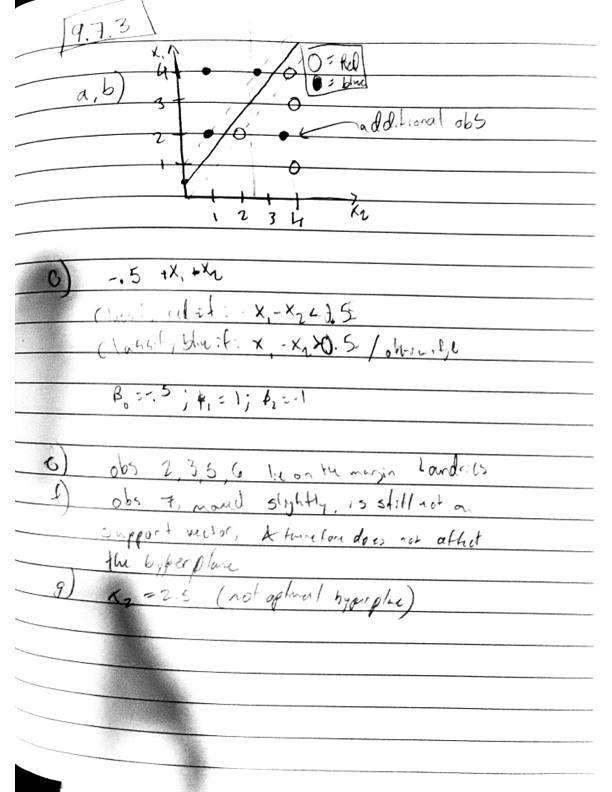 9.7.3
X₁
4
3
2
1
1 2 3 4
X₂
O = Red
● = blue
a, b)
additional obs
c) -.5 + X₁ + X₂
if: X₁ - X₂ < 0.5
Classify blue if: X₁ - X₂ > 0.5 / otherwise
β₀ = -.5 ; β₁ = 1 ; β₂ = -1
e) obs 2, 3, 5, 6 lie on the margin
f) obs 7, moved slightly, is still not a
support vector, & therefore does not affect
the hyperplane
g) X₂ = 2.5 (not optimal hyperplane)